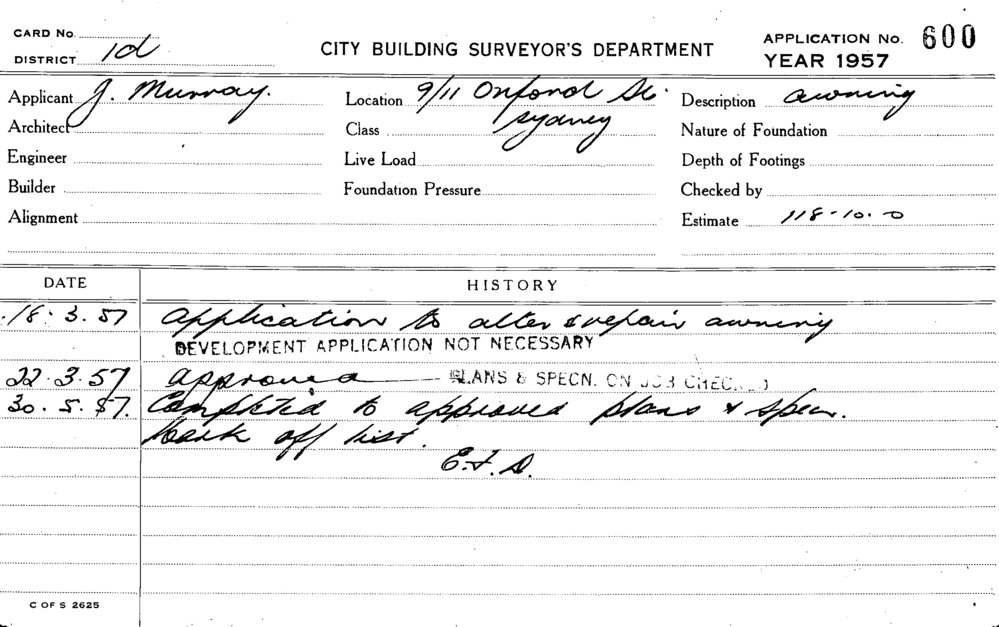 CARD No.
DISTRICT 1d
CITY BUILDING SURVEYOR'S DEPARTMENT
APPLICATION No. 600
YEAR 1957
Applicant J. Murray. Location 9/11 Oxford St. Description awning
Sydney
Architect Class Nature of Foundation
Engineer Live Load Depth of Footings
Builder Foundation Pressure Checked by
Alignment Estimate 118-10-0
DATE HISTORY
18.3.57 Application to alter & repair awning
DEVELOPMENT APPLICATION NOT NECESSARY
22.3.57 Approved PLANS & SPECN. ON JOB CHECKED
30.5.57. Completed to approved plans & specn.
Mark off list.
C OF S 2625